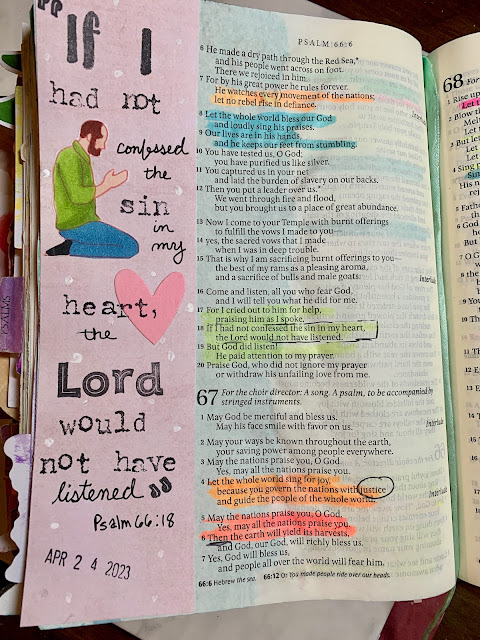 "If I
had not
confessed
the
sin
in
my
heart,
the
Lord
would
not have
listened"
Psalm 66:18
APR 24 2023
PSALMS
PSALM 66:6
6 He made a dry path through the Red Sea,*
and his people went across on foot.
There we rejoiced in him.
7 For by his great power he rules forever.
He watches every movement of the nations;
let no rebel rise in defiance.
Interlude
8 Let the whole world bless our God
and loudly sing his praises.
9 Our lives are in his hands,
and he keeps our feet from stumbling.
10 You have tested us, O God;
you have purified us like silver.
11 You captured us in your net
and laid the burden of slavery on our backs.
12 Then you put a leader over us.*
We went through fire and flood,
but you brought us to a place of great abundance.
13 Now I come to your Temple with burnt offerings
to fulfill the vows I made to you—
14 yes, the sacred vows that I made
when I was in deep trouble.
15 That is why I am sacrificing burnt offerings to you—
the best of my rams as a pleasing aroma,
and a sacrifice of bulls and male goats.
Interlude
16 Come and listen, all you who fear God,
and I will tell you what he did for me.
17 For I cried out to him for help,
praising him as I spoke.
18 If I had not confessed the sin in my heart,
the Lord would not have listened.
19 But God did listen!
He paid attention to my prayer.
20 Praise God, who did not ignore my prayer
or withdraw his unfailing love from me.
67 For the choir director: A song. A psalm, to be accompanied by
stringed instruments.
1 May God be merciful and bless us.
May his face smile with favor on us.
Interlude
2 May your ways be known throughout the earth,
your saving power among people everywhere.
3 May the nations praise you, O God.
Yes, may all the nations praise you.
4 Let the whole world sing for joy,
because you govern the nations with justice
and guide the people of the whole world.
Interlude
5 May the nations praise you, O God.
Yes, may all the nations praise you.
6 Then the earth will yield its harvests,
and God, our God, will richly bless us.
7 Yes, God will bless us,
and people all over the world will fear him.
66:6 Hebrew the sea. 66:12 Or You made people ride over our heads.
68 For
1 Rise up
Let
2 Blow
3 But
Let
Let
4 Sing
Sing
His
5
6 God
7 O
8
9 You
10
11
12
13
14
15
16
17